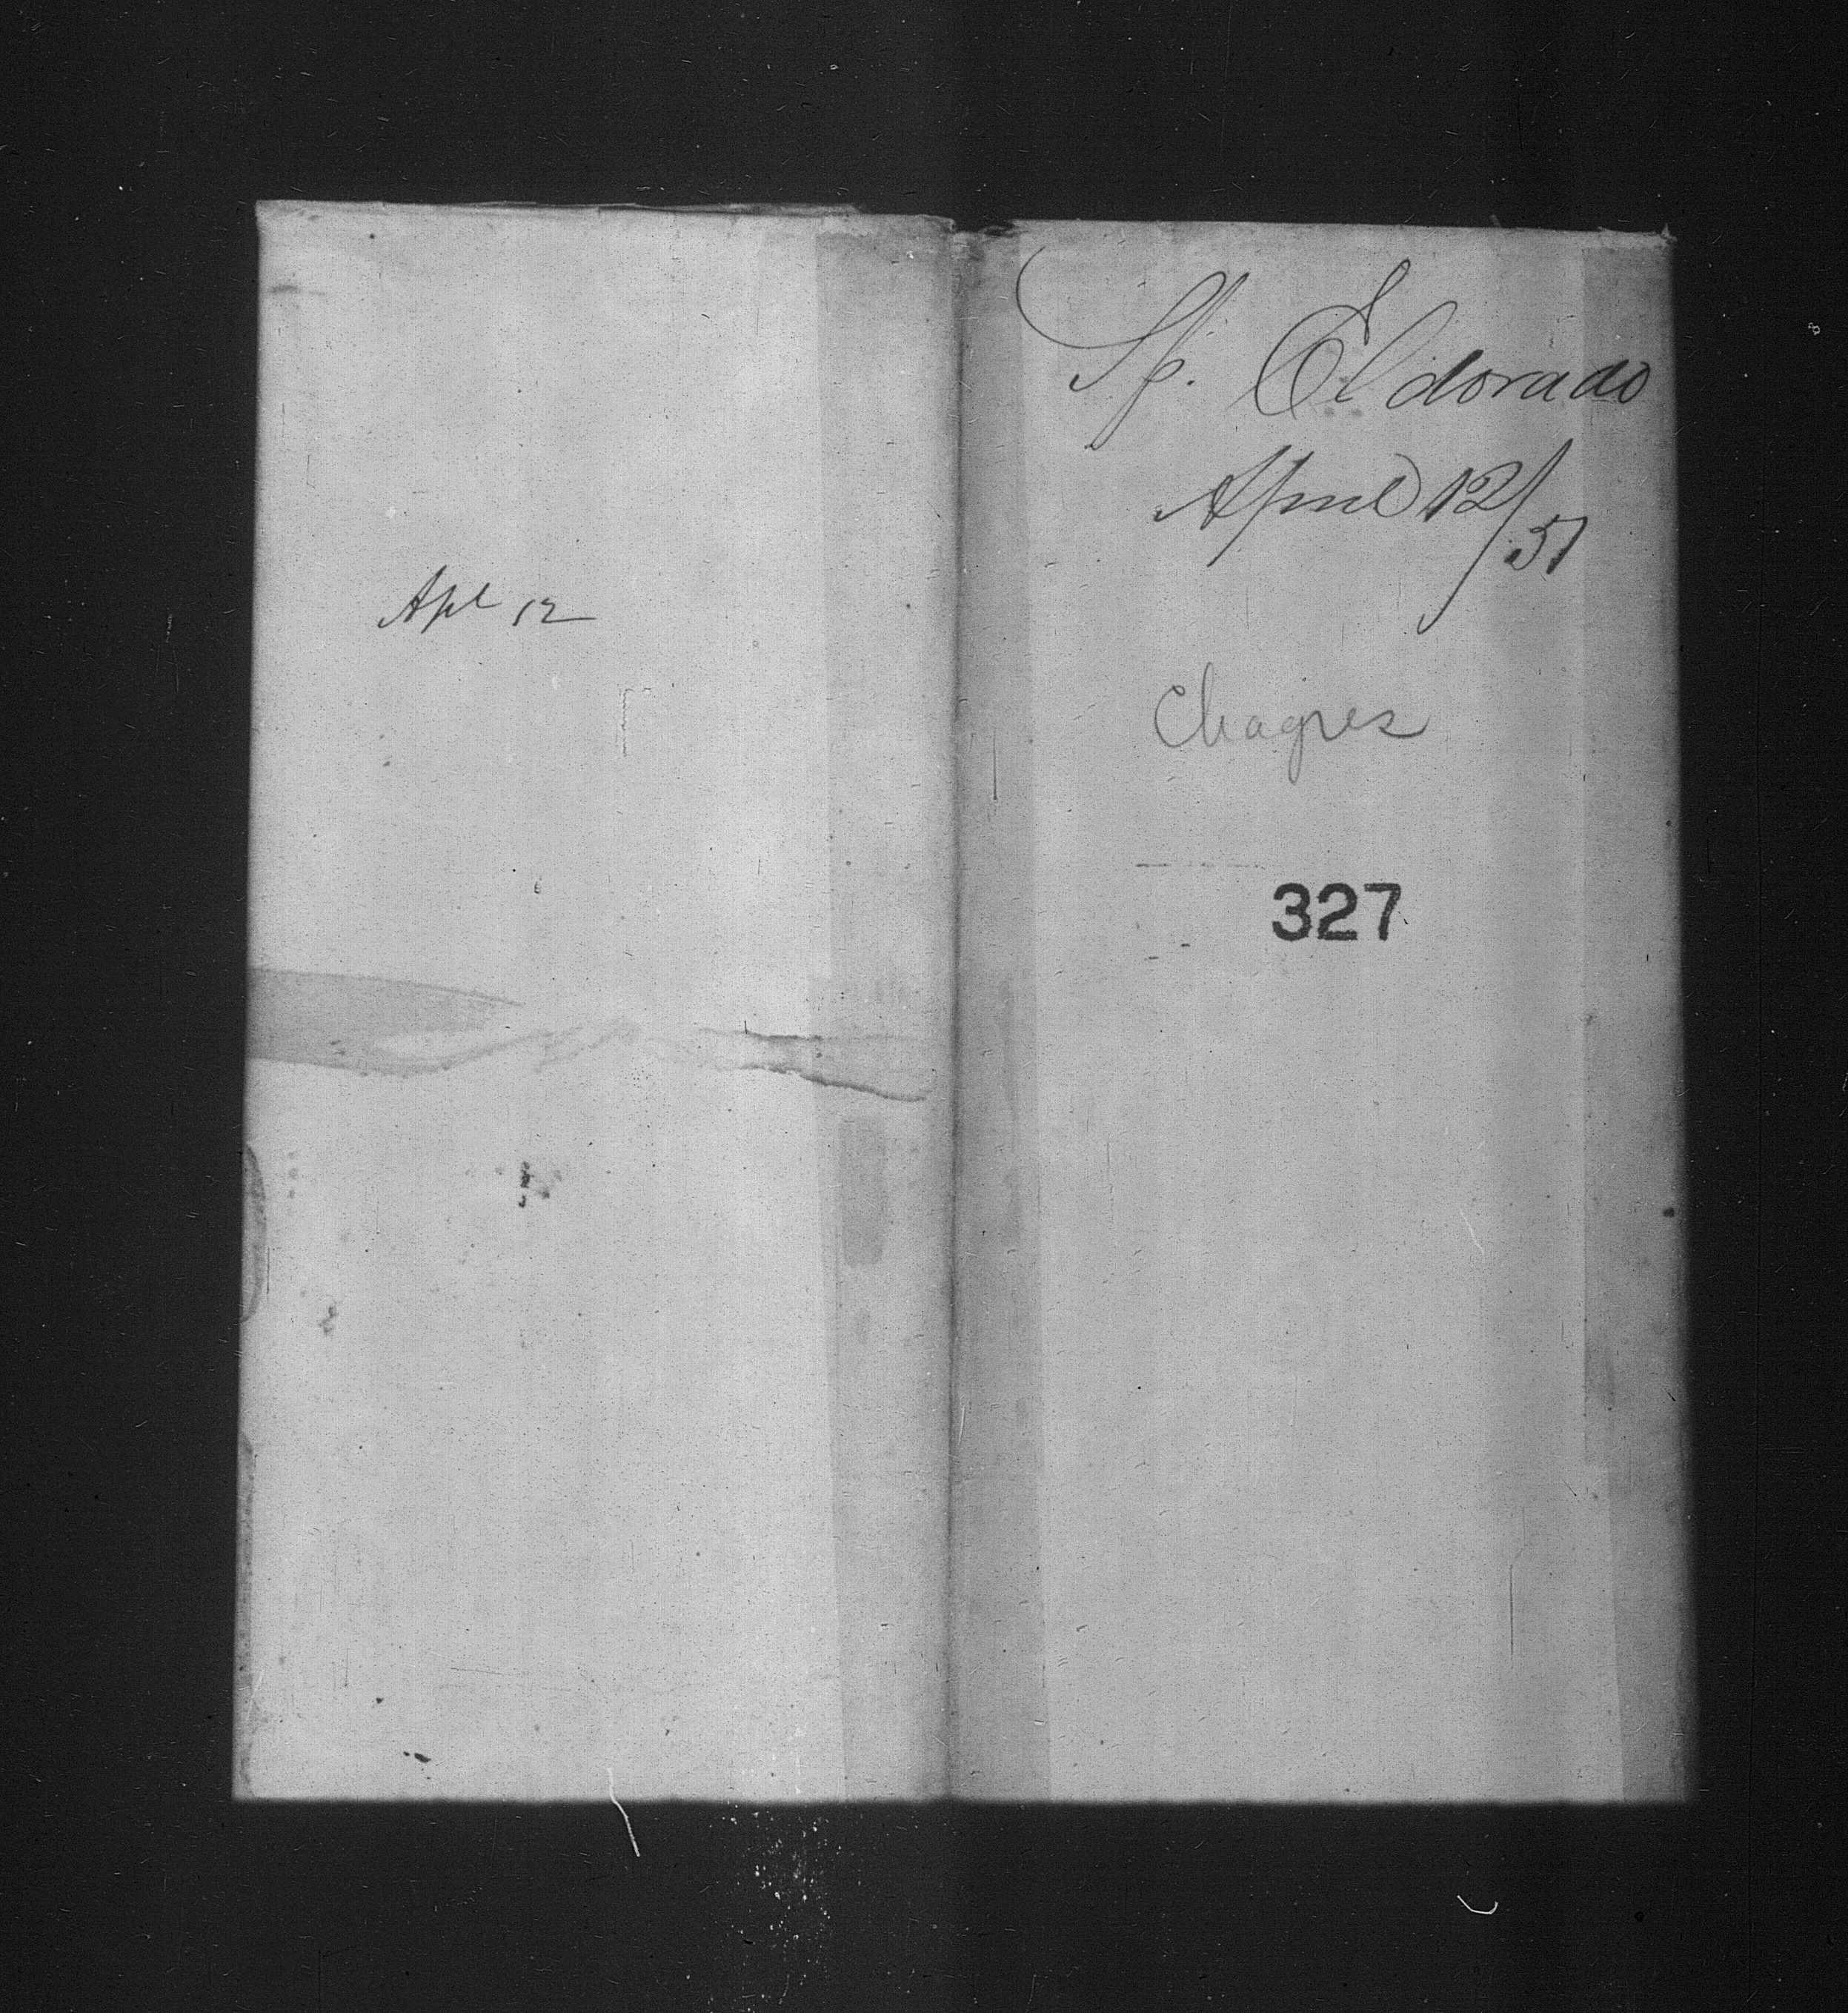 Apl 12
Sp. Eldorado
April 12/51
Chagres
327